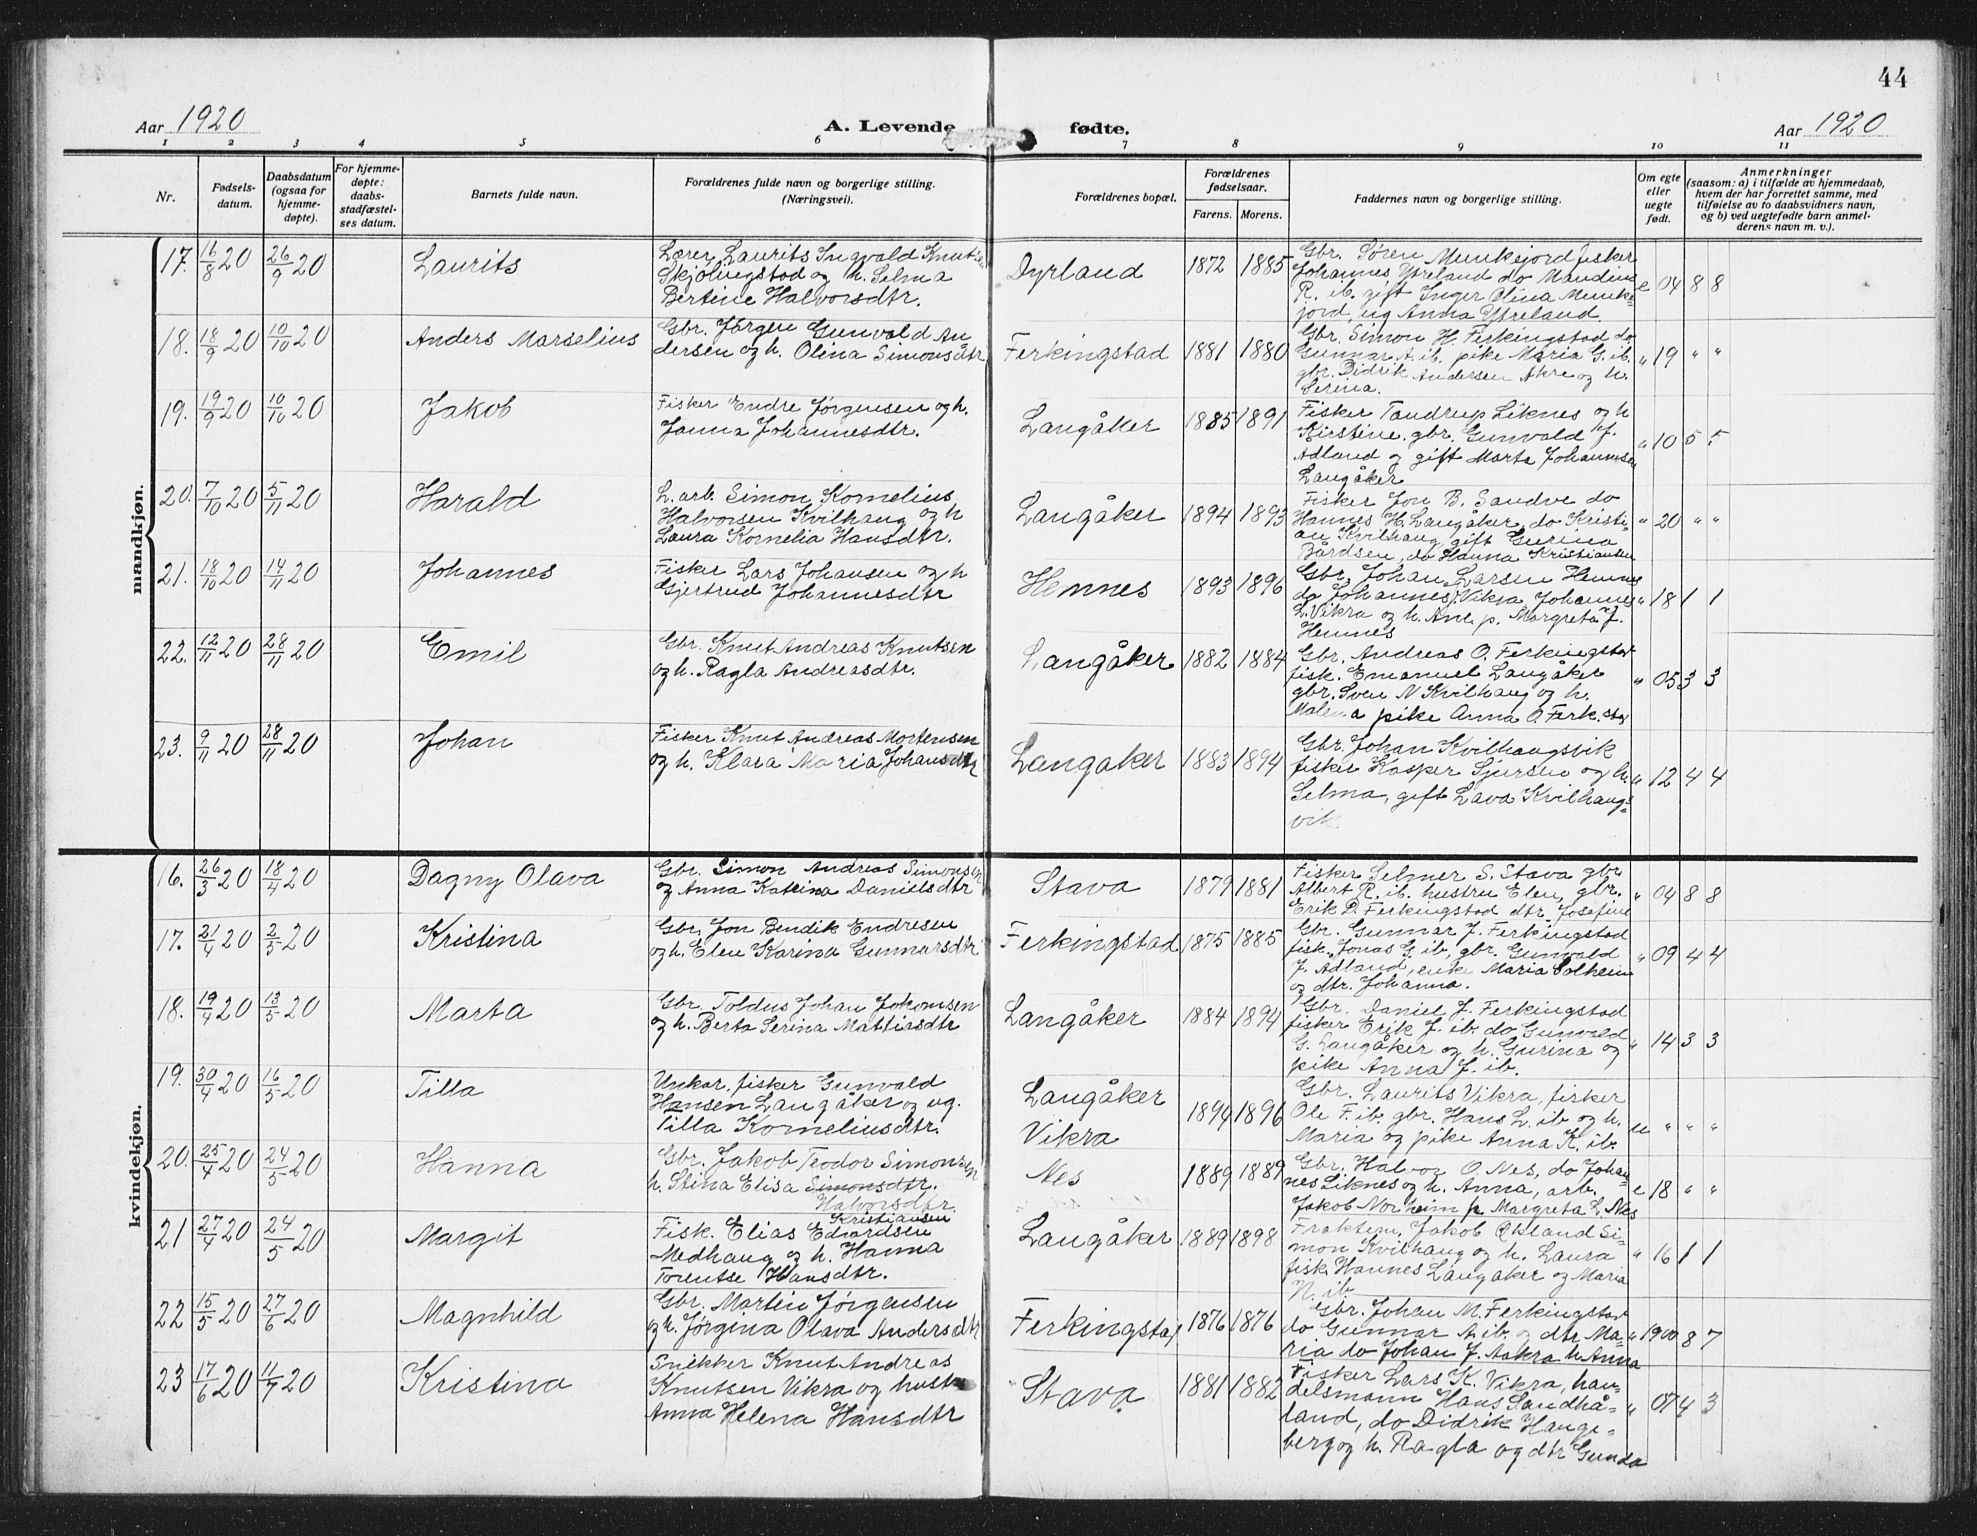 44
Aar 1920
A. Levende fødte.
Aar 1920
1 2 3 4 5 6 7 8 9 10 11
Nr.
Fødsels-
datum.
Daabsdatum
(ogsaa for
hjemme-
døpte).
For hjemme-
døpte:
daabs-
stadfæstel-
ses datum.
Barnets fulde navn.
Forældrenes fulde navn og borgerlige stilling.
(Næringsvei).
Forældrenes bopæl.
Forældrenes
fødselsaar.
Farens. Morens.
Faddernes navn og borgerlige stilling.
Om egte
eller
uegte
født.
Anmerkninger
(saasom: a) i tilfælde av hjemmedaab,
hvem der har forrettet samme, med
tilføielse av to daabsvidners navn,
og b) ved uegtefødte barn anmel-
derens navn m. v.).
mandkjøn.
17. 16/8 20 26/9 20 Laurits
Lærer Laurits Ingvald Knutsen
Skjølingstad og h. Selma
Bertine Halvorsdtr.
Dyrland 1872 1885
Gbr. Søren Munkejord fisker
Johannes Ytreland do Mandius
R. ib. gift Inger Olina Munke-
jord, ug Anna Ytreland.
e 04 8 8
18. 18/9 20 10/10 20 Anders Marselius
Gbr. Jørgen Gunvald An
dersen og h. Olina Simonsdtr
Ferkingstad 1881 1880
Gbr. Simon H. Ferkingstad do
Gunnar A. ib. pike Maria G. ib.
gbr. Didrik Andersen Akre og h.
Serina.
" 19 " "
19. 19/9 20 10/10 20 Jakob
Fisker Endre Jørgensen og h.
Janna Johannesdtr.
Langåker 1885 1891
Fisker Tandrup Liknes og h
Kirstine. gbr. Gunvald J.
Adland og gift Marta Johannsen
Langåker
" 10 5 5
20. 7/10 20 5/11 20 Harald
L. arb. Simon Kornelius
Halvorsen Kvilhaug og h
Laura Kornelia Hansdtr.
Langåker 1894 1893
Fisker Jon B. Sandve do
Hannes H. Langåker, do Kristi-
an Kvilhaug, gift Gurina
Bårdsen, do Hanna Kristiansen
" 20 " "
21. 18/10 20 14/11 20 Johannes
Fisker Lars Johansen og h
Gjertrud Johannesdtr
Hemnes 1893 1896
Gbr. Johan Larsen Hemnes
do Johannes Vikra Johannes
L. Vikra og h. Ane p. Margreta J.
Hemnes
" 18 1 1
22. 12/11 20 28/11 20 Emil
Gbr. Knut Andreas Knutsen
og h. Ragla Andreasdtr.
Langåker 1882 1884
Gbr. Andreas O. Ferkingstad
fisk. Emanuel Langåker
gbr. Sven N Kvilhaug og h.
Malena pike Anna O. Ferk.stad
" 05 3 3
23. 9/11 20 28/11 20 Johan
Fisker Knut Andreas Mortensen
og h. Klara Maria Johansdtr
Langaker 1883 1894
Gbr. Johan Kvilhaugsvik
fisker Kasper Sjursen og h.
Selma, gift Lava Kvilhaugs-
vik
" 12 4 4
kvindekjøn.
16. 26/3 20 18/4 20 Dagny Olava
Gbr. Simon Andreas Simonsen
og Anna Katrina Danielsdtr
Stava 1879 1881
Fisker Selmer S. Stava gbr
Albert R. ib. hustru Elen, gbr.
Erik D. Ferkingstad dtr Josefine
" 04 8 8
17. 21/4 20 2/5 20 Kristina
Gbr. Jon Bendik Endresen
og h. Elen Karina Gunnarsdtr
Ferkingstad 1875 1885
Gbr. Gunnar J. Ferkingstad
fisk. Jonas G. ib, gbr. Gunvald
J. Adland, enke Maria Solheim
og dtr. Johanna.
" 09 4 4
18. 19/4 20 13/5 20 Marta
Gbr. Toldus Johan Johansen
og h. Berta Serina Mattiasdtr
Langåker 1884 1894
Gbr. Daniel J. Ferkingstad
fisker Erik J. ib. do Gunvald
G. Langåker og h. Gurina og
pike Anna J. ib.
" 14 3 3
19. 30/4 20 16/5 20 Tilla
Unkar, fisker Gunvald
Hansen Langåker og ug.
Tilla Korneliusdtr.
Langåker
Vikra
1894 1896
Gbr. Laurits Vikra, fisker
Ole F. ib. gbr. Hans L. ib og h.
Maria og pike Anna K. ib.
u " " "
20. 25/4 20 24/5 20 Hanna
Gbr. Jakob Teodor Simonsen
h. Stina Elisa Simonsdtr.
Halvorsdtr
Nes 1889 1889
Gbr. Halvor O. Nes, do Johan-
nes Liknes og h. Anna, arb.
Jakob Norheim p. Margreta L. Nes
e 18 " "
21 27/4 20 24/5 20 Margit
Kristiansen
Fisk. Elias Edvardsen
Medhaug og h. Hanna
Torentse Hansdtr.
Langåker 1889 1898
Fraktem. Jakob Økland Si-
mon Kvilhaug og h. Laura
fisk Hannes Langaker og Maria
N. ib
" 16 1 1
22 15/5 20 27/6 20 Magnhild
Gbr. Martin Jørgensen
og h. Jørgina Olava Andersdtr
Ferkingstad 1876 1876
Gbr. Johan M. Ferkingstad
do Gunnar A. ib. og dtr Ma-
ria do Johan J. Aakra h Anna
" 1900 8 7
23 17/6 20 11/7 20 Kristina
Snekker Knut Andreas
Knutsen Vikra og hust
Anna Helena Hansdtr
Stava 1881 1882
Fisker Lars K. Vikra, han-
delsmann Hans Sandhå-
land, do Didrik Hauge-
berg og h. Ragla og dtr Gunda
" 07 4 3